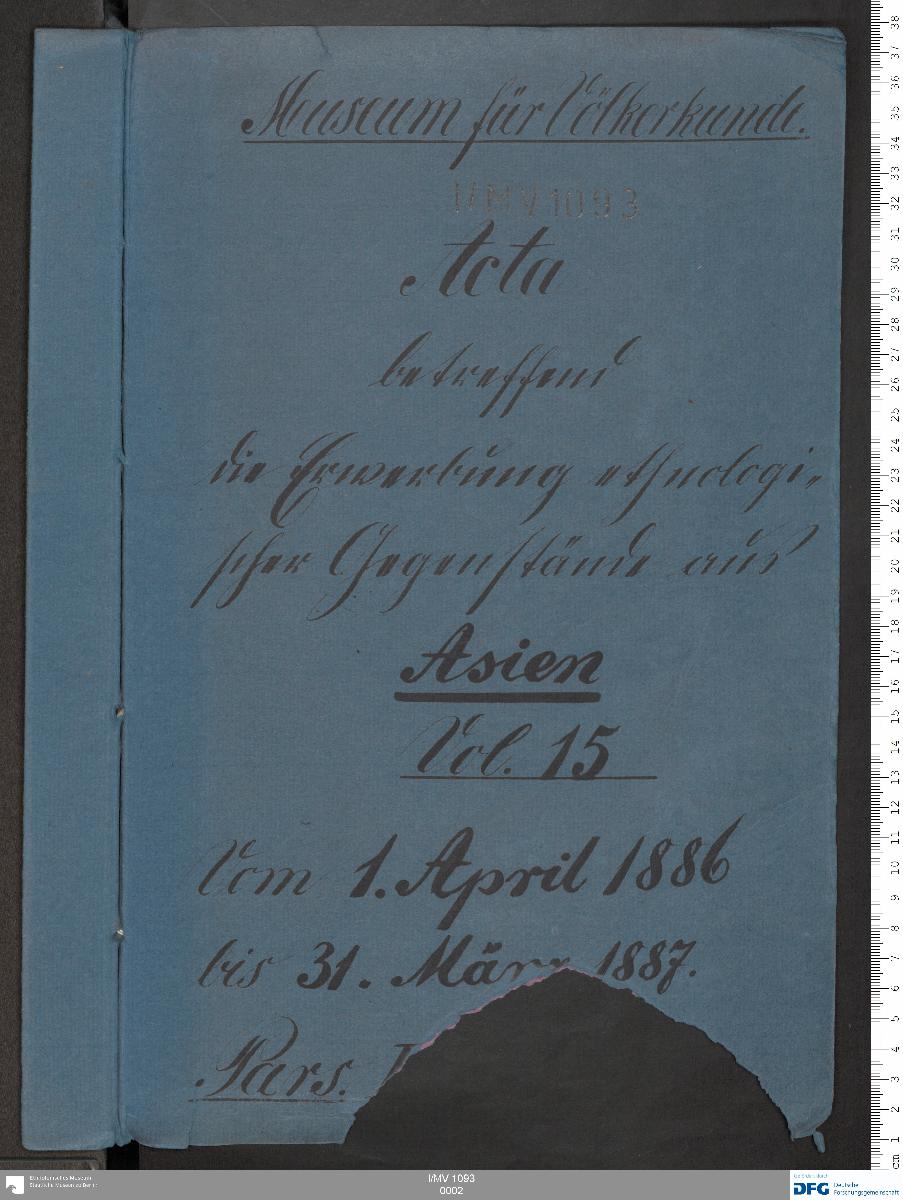 Museum für Völkerkunde.
I/MV 1093
Acta
betreffend
die Erwerbung ethnologi-
scher Gegenstände aus
Asien
Vol. 15
Vom 1. April 1886
bis 31. März 1887.
Pars.
Ethnologisches Museum
Staatliche Museen zu Berlin
I/MV 1093
0002
Gefördert durch
DFG Deutsche
Forschungsgemeinschaft
cm 1 2 3 4 5 6 7 8 9 10 11 12 13 14 15 16 17 18 19 20 21 22 23 24 25 26 27 28 29 30 31 32 33 34 35 36 37 38